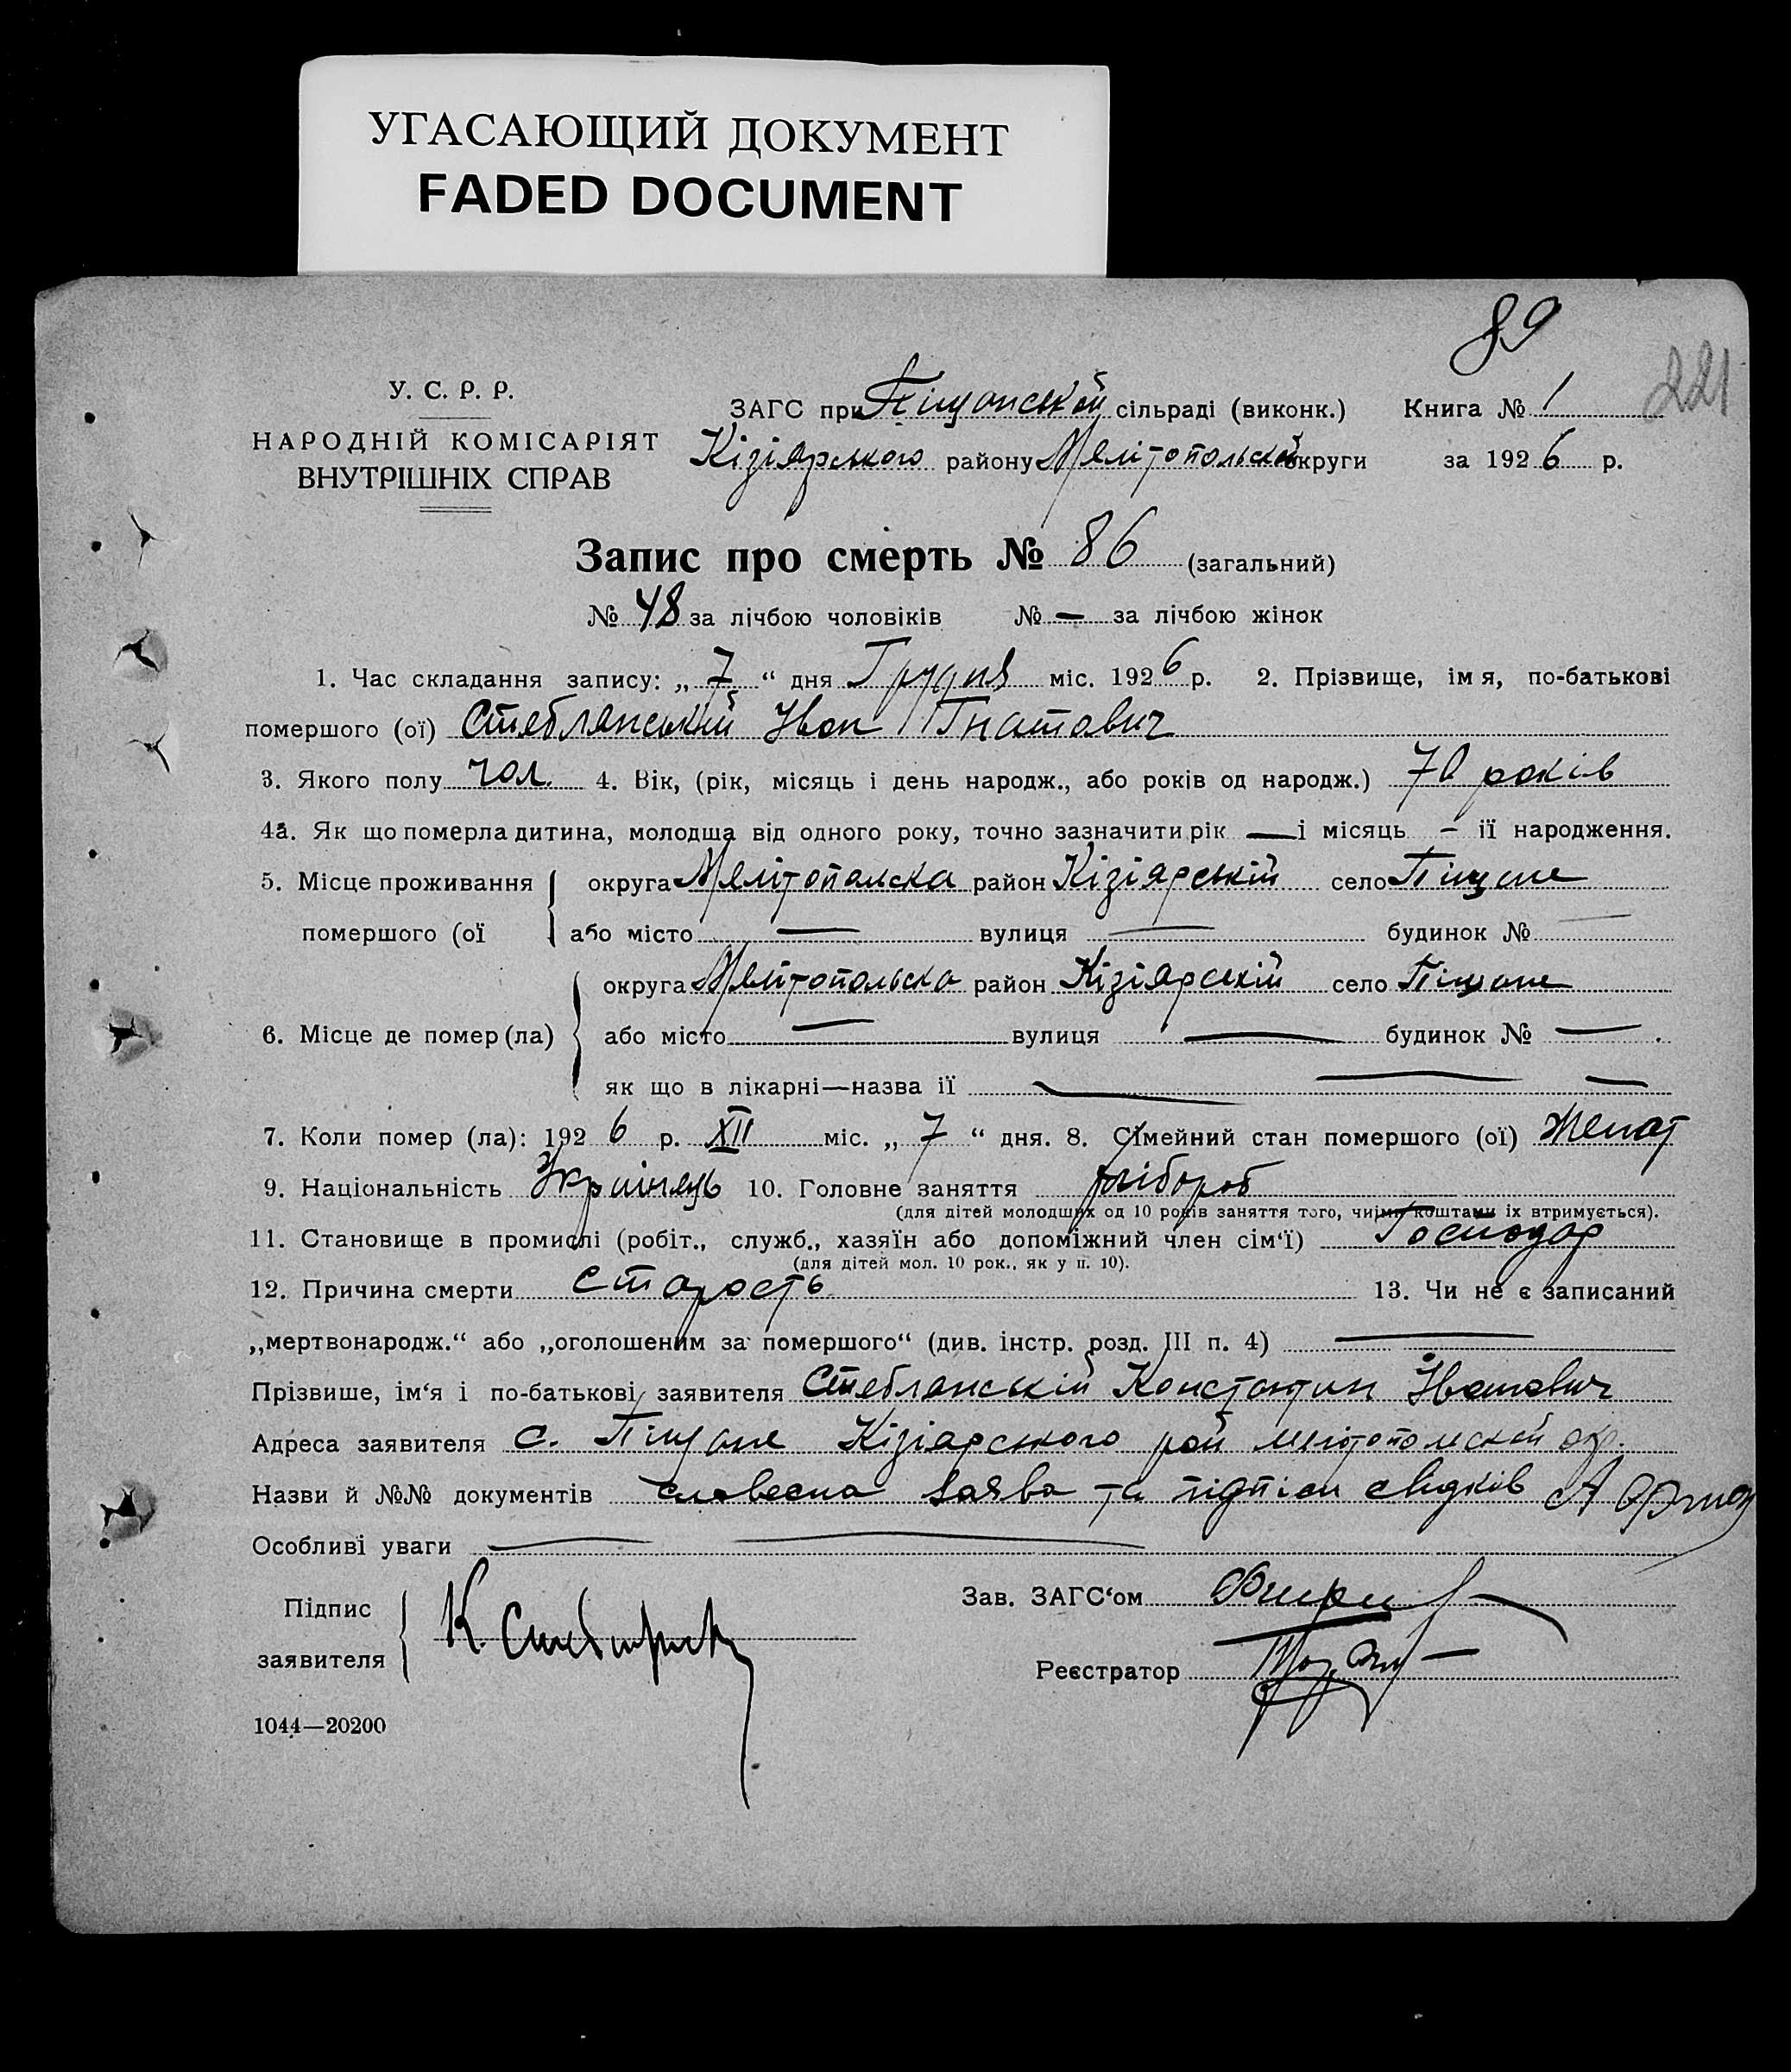 УГАСАЮЩИЙ ДОКУМЕНТ
FADED DOCUMENT
89
221
У. С. Р. Р.
НАРОДНІЙ КОМІСАРІЯТ
ВНУТРІШНІХ СПРАВ
ЗАГС при Піщанській сільраді (виконк.) Книга № 1
Кізіярського району Мелітопольскій округи за 1926 р.
Запис про смерть № 86 (загальний)
№ 48 за лічбою чоловіків № — за лічбою жінок
1. Час складання запису: „ 7 “ дня Грудня міс. 1926 р. 2. Прізвище, імя, по-батькові
померщого (ої) Стеблянський Іван Гнатович
3. Якого полу чол. 4. Вік, (рік, місяць і день народж., або років од народж.) 70 років
4а. Як що померла дитина, молодща від одного року, точно зазначити рік — і місяць – ії народження.
5. Місце проживання округа Мелітопольска район Кізіярський село Піщане
помершого (ої або місто — вулиця — будинок № —
округа Мелітопольска район Кізіярскій село Піщане
6. Місце де помер (ла) або місто — вулиця — будинок № —
як що в лікарні—назва ії — — —
7. Коли помер (ла): 1926 р. XII міс. „ 7 “ дня. 8. Сімейний стан помершого (ої) Женат
9. Національність Українець 10. Головне заняття хлібороб
(для дітей молодших од 10 років заняття того, чиіми коштами іх втримується).
11. Становище в промислі (робіт., служб., хазяїн або допоміжний член сім‘ї) Господар
(для дітей мол. 10 рок., як у п. 10).
12. Причина смерти старость 13. Чи не є записаний
„мертвонародж.“ або „оголошеним за помершого“ (див. інстр. розд. III п. 4) —
Прізвише, ім‘я і по-батькові заявителя Стеблянській Константин Іванович
Адреса заявителя с. Піщане Кізіарського рай мелітополскій окр.
Назви й №№ документів словесна заява та підпіси свідків
Особливі уваги — —
Підпис
заявителя К.
Зав. ЗАГС‘ом
Реєстратор
1044—20200